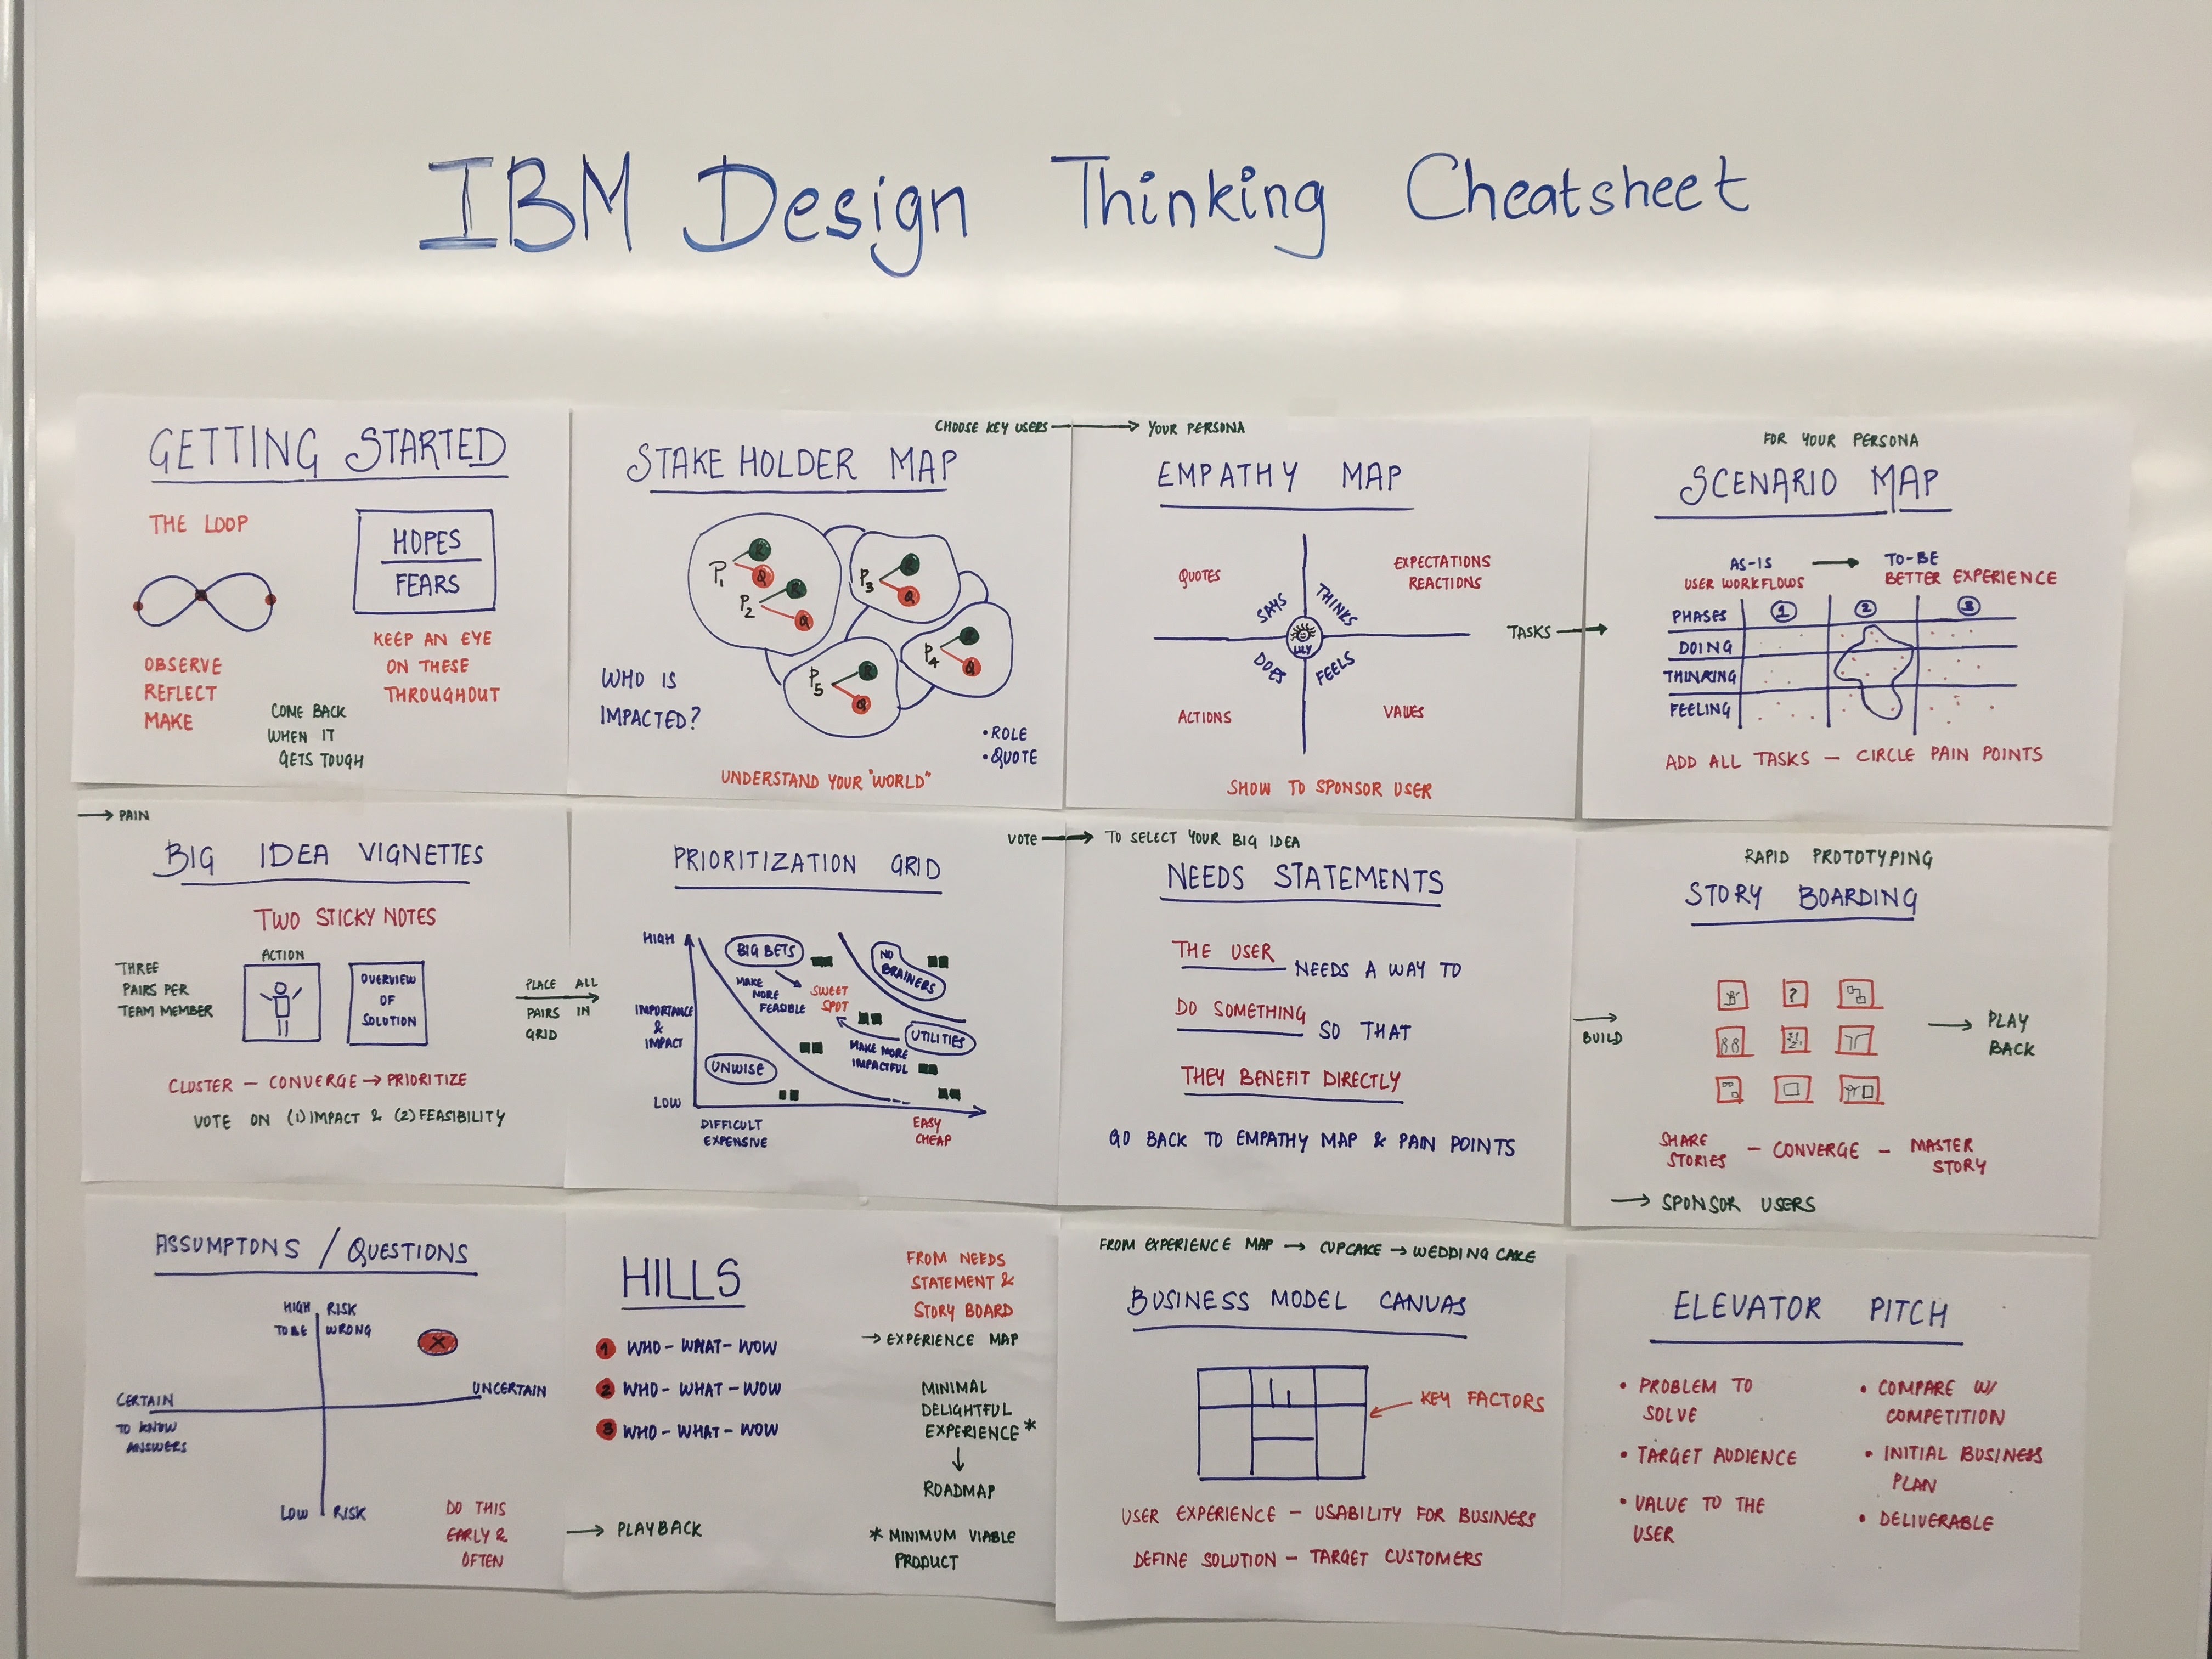 IBM Design Thinking Cheatsheet
GETTING STARTED
THE LOOP
OBSERVE
REFLECT
MAKE
HOPES
FEARS
KEEP AN EYE
ON THESE
THROUGHOUT
COME BACK
WHEN IT
GETS TOUGH
CHOOSE KEY USERS
STAKEHOLDER MAP
P1
R
Q
P2
R
Q
P3
R
Q
P4
R
Q
P5
R
Q
WHO IS
IMPACTED?
• ROLE
• QUOTE
UNDERSTAND YOUR "WORLD"
→ YOUR PERSONA
EMPATHY MAP
QUOTES
EXPECTATIONS
REACTIONS
SAYS
THINKS
LILY
DOES
FEELS
ACTIONS
VALUES
TASKS →
SHOW TO SPONSOR USER
FOR YOUR PERSONA
SCENARIO MAP
AS-IS → TO-BE
USER WORKFLOWS BETTER EXPERIENCE
PHASES 1 2 3
DOING
THINKING
FEELING
ADD ALL TASKS — CIRCLE PAIN POINTS
→ PAIN
BIG IDEA VIGNETTES
TWO STICKY NOTES
THREE
PAIRS PER
TEAM MEMBER
ACTION
OVERVIEW
OF
SOLUTION
PLACE ALL
PAIRS IN
GRID
CLUSTER — CONVERGE → PRIORITIZE
VOTE ON (1) IMPACT & (2) FEASIBILITY
VOTE
PRIORITIZATION GRID
HIGH
IMPORTANCE
&
IMPACT
LOW
BIG BETS
MAKE
MORE
FEASIBLE
SWEET
SPOT
NO
BRAINERS
UTILITIES
MAKE MORE
IMPACTFUL
UNWISE
DIFFICULT
EXPENSIVE
EASY
CHEAP
→ TO SELECT YOUR BIG IDEA
NEEDS STATEMENTS
THE USER NEEDS A WAY TO
DO SOMETHING SO THAT
THEY BENEFIT DIRECTLY
GO BACK TO EMPATHY MAP & PAIN POINTS
RAPID PROTOTYPING
STORY BOARDING
→
BUILD
?
→ PLAY
BACK
SHARE
STORIES — CONVERGE — MASTER
STORY
→ SPONSOR USERS
ASSUMPTONS / QUESTIONS
HIGH RISK
TO BE WRONG
X
CERTAIN
TO KNOW
ANSWERS
UNCERTAIN
LOW RISK
DO THIS
EARLY &
OFTEN
HILLS
1 WHO - WHAT - WOW
2 WHO - WHAT - WOW
3 WHO - WHAT - WOW
→ PLAYBACK
FROM NEEDS
STATEMENT &
STORY BOARD
→ EXPERIENCE MAP
MINIMAL
DELIGHTFUL
EXPERIENCE *
↓
ROADMAP
* MINIMUM VIABLE
PRODUCT
FROM EXPERIENCE MAP → CUPCAKE → WEDDING CAKE
BUSINESS MODEL CANVAS
KEY FACTORS
USER EXPERIENCE — USABILITY FOR BUSINESS
DEFINE SOLUTION — TARGET CUSTOMERS
ELEVATOR PITCH
• PROBLEM TO
SOLVE
• TARGET AUDIENCE
• VALUE TO THE
USER
• COMPARE W/
COMPETITION
• INITIAL BUSINESS
PLAN
• DELIVERABLE